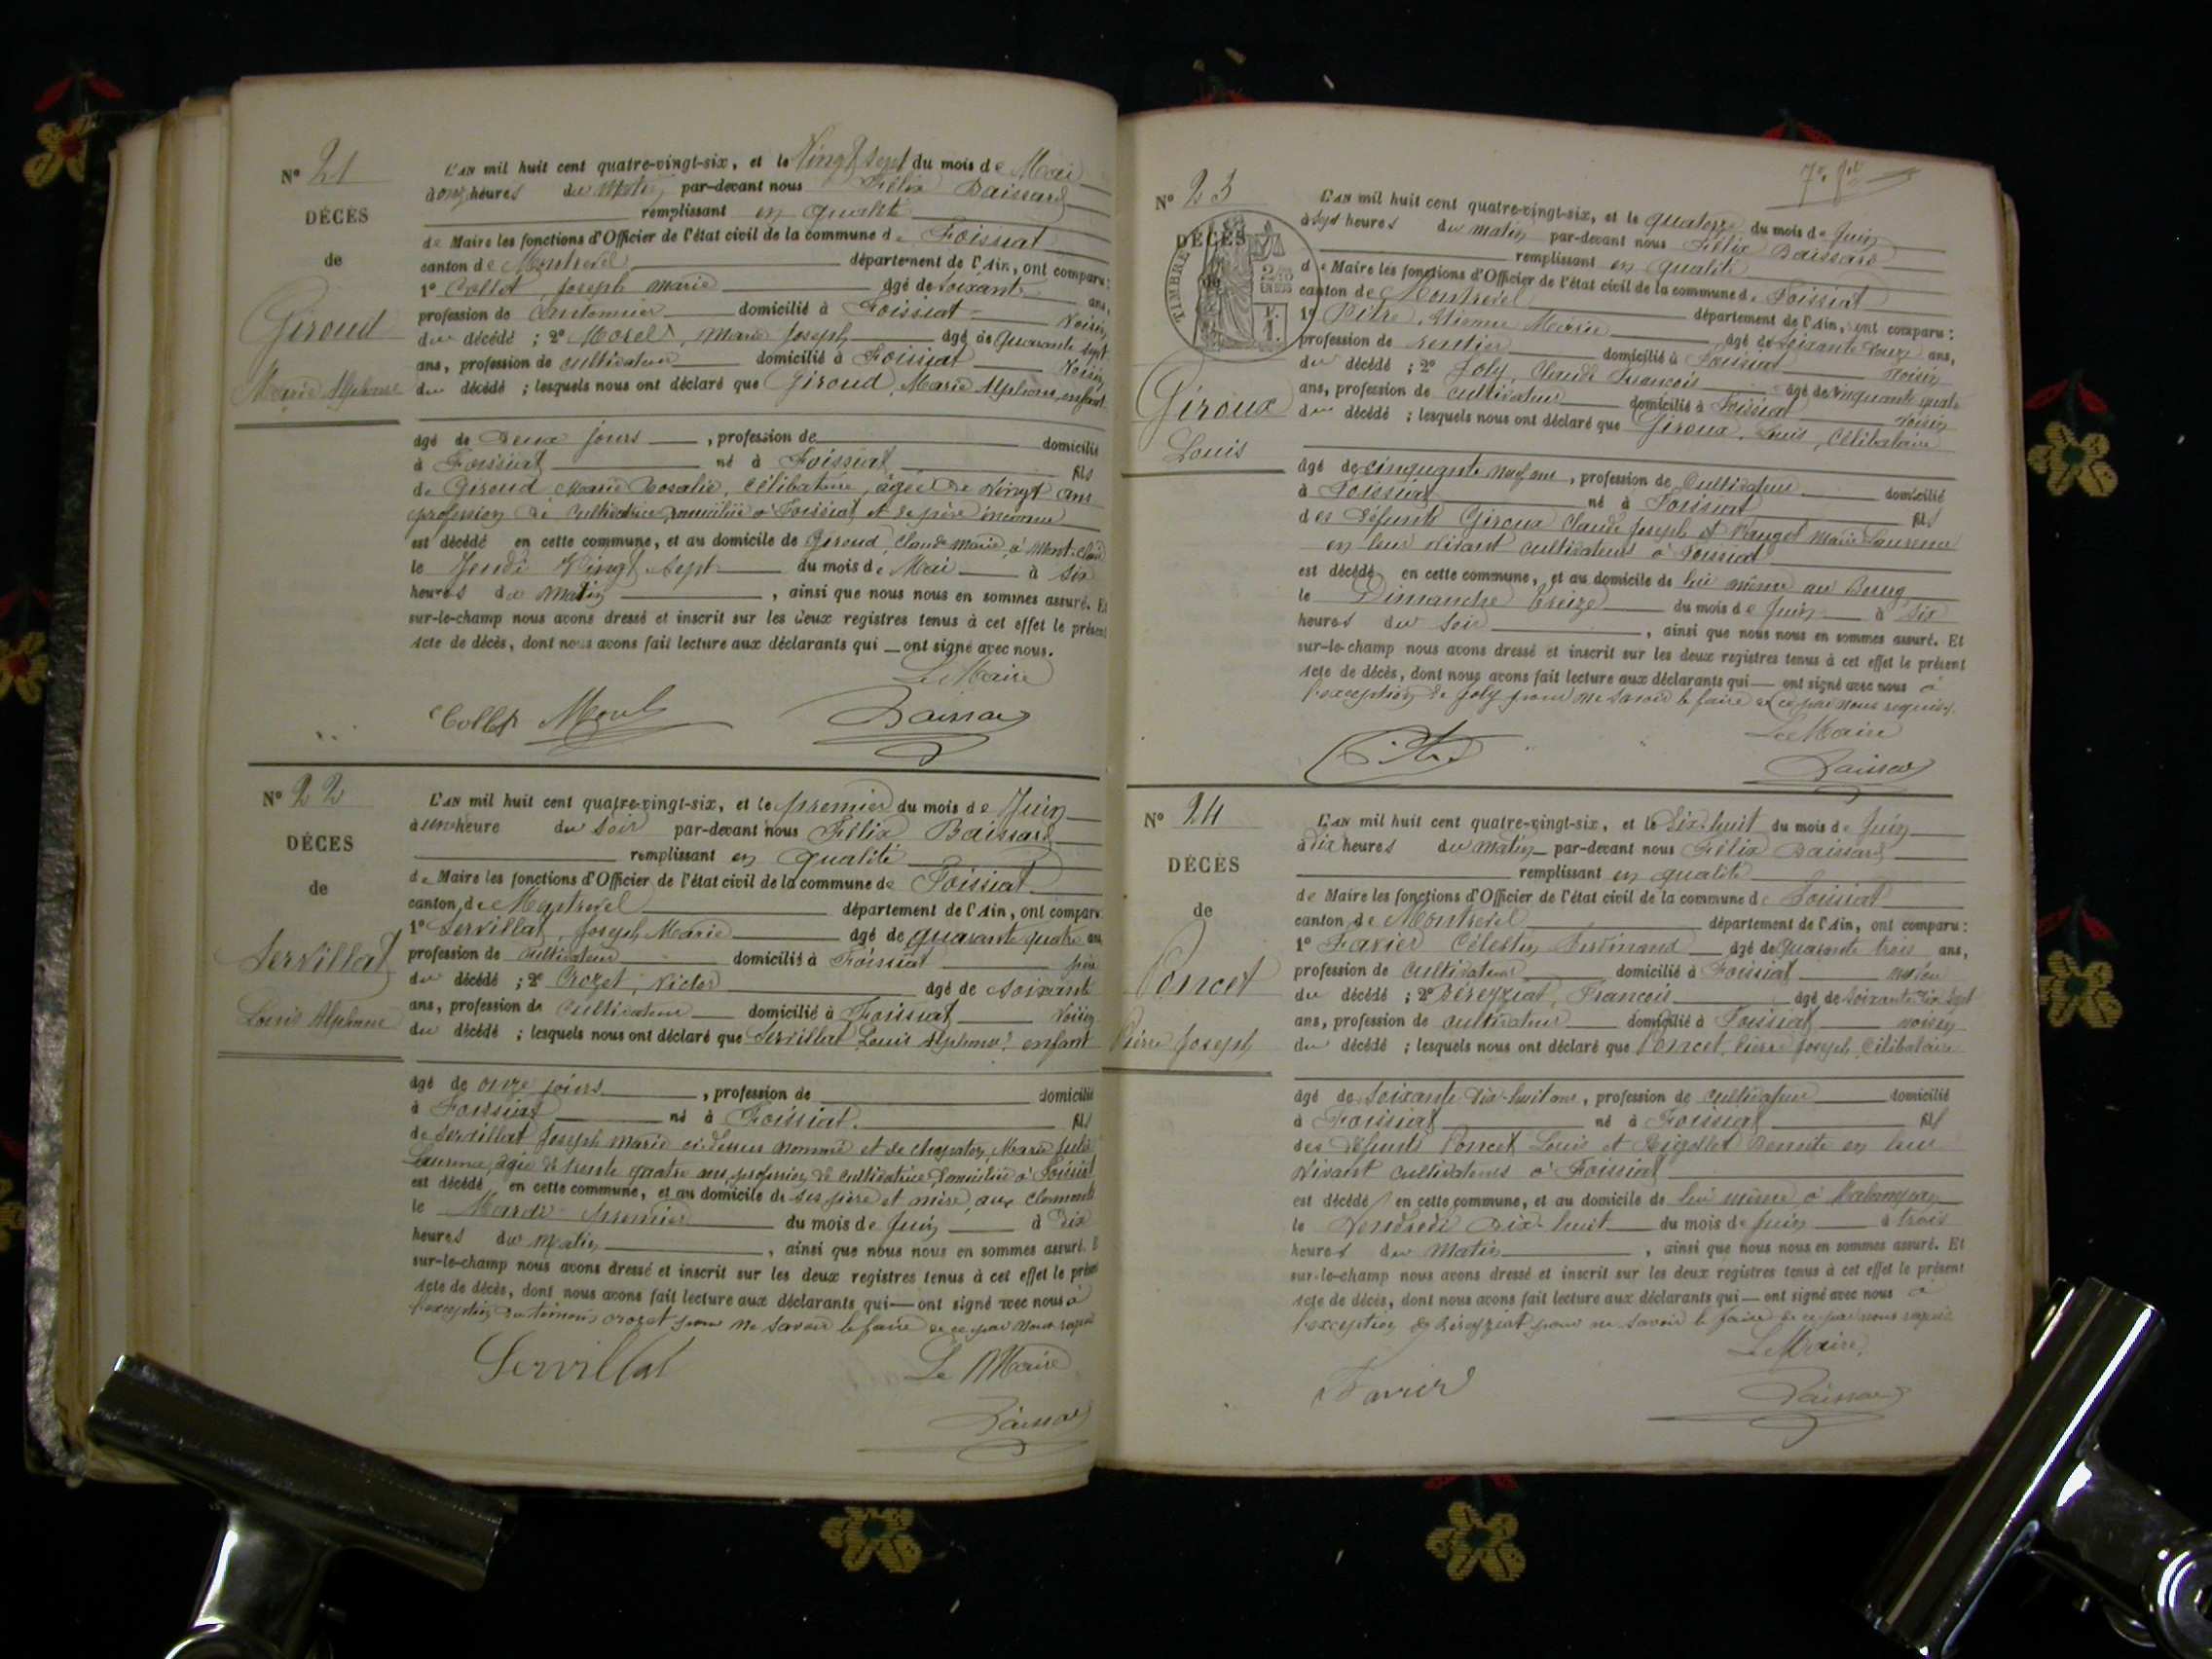 N° 21
DÉCÈS
de
Giroud
Marie Alphonse
L'AN mil huit cent quatre-vingt-six, et le Vingt Sept du mois de Mai
à onze heures du Matin par-devant nous Félix Baissard
remplissant en qualité
de Maire les fonctions d'Officier de l'état civil de la commune de Foissiat
canton de Montrevel département de l'Ain, ont comparu:
1° Collet, Joseph Marie âgé de Soixante ans,
profession de Cantonnier domicilié à Foissiat Voisin
du décédé ; 2° Morel, Marie Joseph âgé de Quarante sept
ans, profession de cultivateur domicilié à Foissiat Voisin
du décédé ; lesquels nous ont déclaré que Giroud, Marie Alphonse, enfant
âgé de Deux jours, profession de domicilié
à Foissiat né à Foissiat fils
de Giroud Marie Rosalie, célibataire, âgée de Vingt ans
profession de Cultivatrice, domiciliée à Foissiat et de père inconnu
est décédé en cette commune, et au domicile de Giroud, Claude Marie, à
le Jeudi Vingt Sept du mois de Mai à six
heures du Matin, ainsi que nous nous en sommes assuré. Et
sur-le-champ nous avons dressé et inscrit sur les deux registres tenus à cet effet le présent
acte de décès, dont nous avons fait lecture aux déclarants qui ont signé avec nous.
Le Maire
Collet Morel Baissard
N° 22
DÉCES
de
Servillat
Louis Alphonse
L'AN mil huit cent quatre-vingt-six, et le premier du mois de Juin
à une heure du soir par-devant nous Félix Baissard
remplissant en qualité
de Maire les fonctions d'Officier de l'état civil de la commune de Foissiat
canton de Montrevel département de l'Ain, ont comparu
1° Servillat, Joseph Marie âgé de quarante quatre ans
profession de Cultivateur domicilié à Foissiat père
du décédé ; 2° Crozet, Victor âgé de soixante
ans, profession de Cultivateur domicilié à Foissiat Voisin
du décédé ; lesquels nous ont déclaré que Servillat Louis Alphonse, enfant
âgé de onze jours, profession de domicilié
à Foissiat né à Foissiat. fils
de Servillat Joseph Marie ci-dessus nommé et de Chapaton, Marie Julie
Laurence, âgée de trente quatre ans, profession de cultivatrice, domiciliée à Foissiat
est décédé en cette commune, et au domicile de ses père et mère, aux
le Mardi premier du mois de Juin à Dix
heures du Matin, ainsi que nous nous en sommes assuré. E
sur-le-champ nous avons dressé et inscrit sur les deux registres tenus à cet effet le présent
acte de décès, dont nous avons fait lecture aux déclarants qui — ont signé avec nous à
l'exception du témoin Crozet pour ne savoir le faire de ce par nous requis
Servillat Le Maire
Baissard
7e ft
N° 23
DÉCÈS
de
TIMBRE
Giroux
Louis
L'AN mil huit cent quatre-vingt-six, et le quatorze du mois de Juin
à sept heures du matin par-devant nous Félix Baissard
remplissant en qualité
de Maire les fonctions d'Officier de l'état civil de la commune de Foissiat
canton de Montrevel département de l'Ain, ont comparu:
1° Pitre, Etienne Marie âgé de soixante Douze ans,
profession de rentier domicilié à Foissiat voisin
du décédé ; 2° Joly, Claude François âgé de cinquante quatre
ans, profession de cultivateur domicilié à Foissiat voisin
du décédé ; lesquels nous ont déclaré que Giroux, Louis, célibataire
âgé de cinquante neuf ans, profession de Cultivateur domicilié
à Foissiat né à Foissiat fils
des Défunts Giroux Claude Joseph et Marie Laurence
en leur vivant cultivateurs à Foissiat
est décédé en cette commune, et au domicile de lui même au Bourg
le Dimanche treize du mois de Juin à six
heures du soir, ainsi que nous nous en sommes assuré. Et
sur-le-champ nous avons dressé et inscrit sur les deux registres tenus à cet effet le présent
acte de décès, dont nous avons fait lecture aux déclarants qui — ont signé avec nous à
l'exception de Joly pour ne savoir le faire de ce par nous requis.
Le Maire
Pitre Baissard
N° 24
DÉCÈS
de
Poncet
Pierre Joseph
L'AN mil huit cent quatre-vingt-six, et le Dix-huit du mois de Juin
à dix heures du matin par-devant nous Félix Baissard
remplissant en qualité
de Maire les fonctions d'Officier de l'état civil de la commune de Foissiat
canton de Montrevel département de l'Ain, ont comparu:
1° Favier Célestin Ferdinand âgé de Quarante trois ans,
profession de cultivateur domicilié à Foissiat neveu
du décédé ; 2° Béreyziat, François âgé de soixante Dix Sept
ans, profession de cultivateur domicilié à Foissiat voisin
du décédé ; lesquels nous ont déclaré que Poncet, Pierre Joseph, célibataire
âgé de soixante Dix-huit ans, profession de cultivateur domicilié
à Foissiat né à Foissiat fils
des Défunts Poncet Louis et Rigollet Benoîte en leur
vivant cultivateurs à Foissiat
est décédé en cette commune, et au domicile de lui même à
le Vendredi Dix-huit du mois de Juin à trois
heures du Matin, ainsi que nous nous en sommes assuré. Et
sur-le-champ nous avons dressé et inscrit sur les deux registres tenus à cet effet le présent
acte de décès, dont nous avons fait lecture aux déclarants qui — ont signé avec nous à
l'exception de Béreyziat pour ne savoir le faire de ce par nous requis
Le Maire,
Favier Baissard